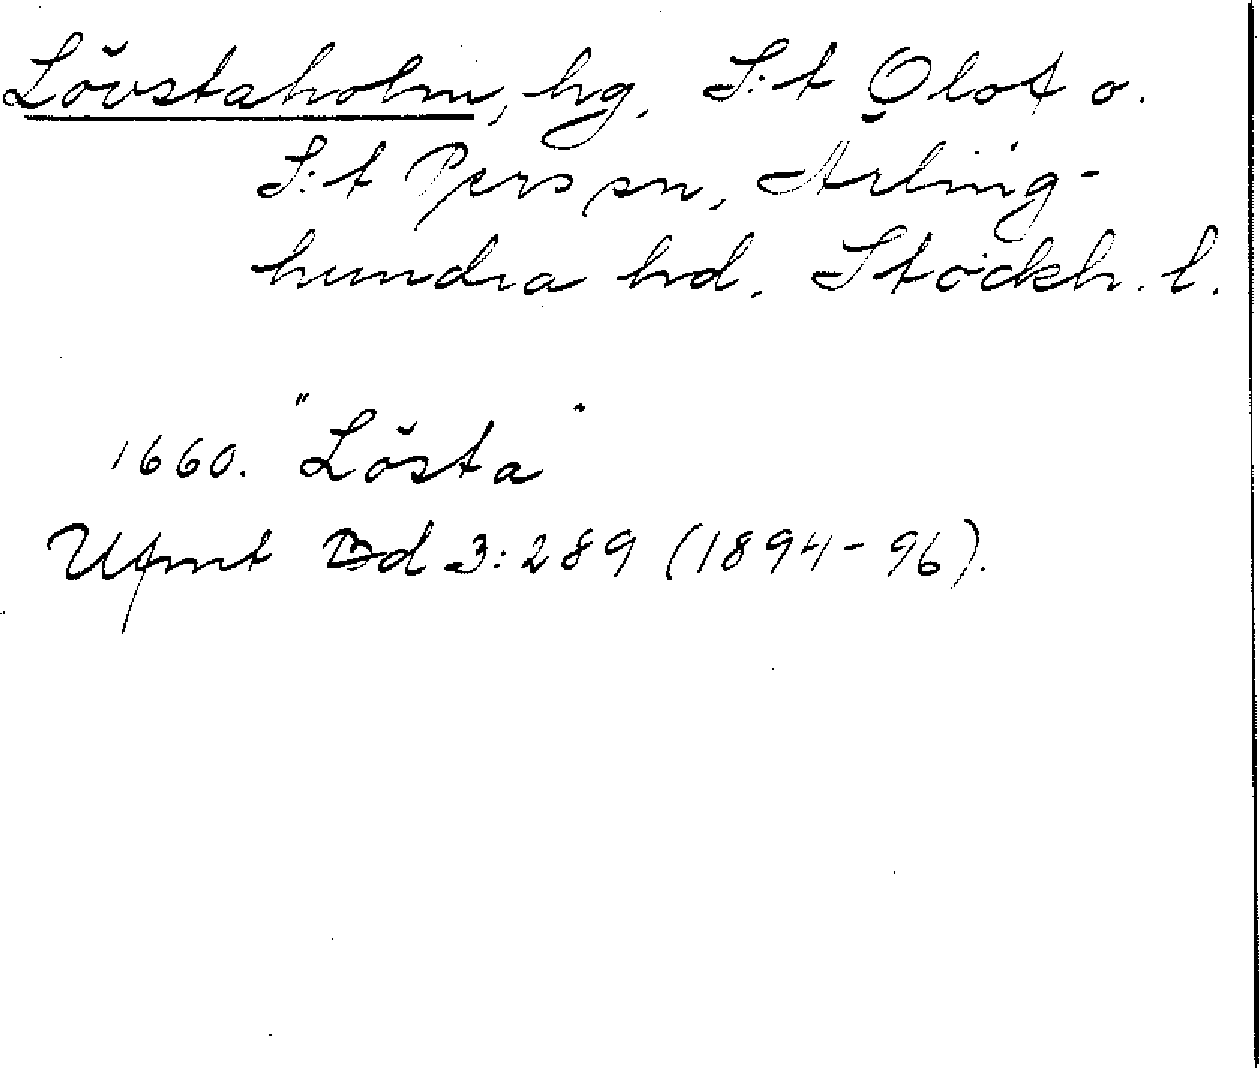 Lövstaholm, hg, S:t Olof o.
S:t Pers sn, Ärling-
hundra hd, Stockh. l.
1660. "Lösta"
Ufmt Bd 3:289 (1894-96).